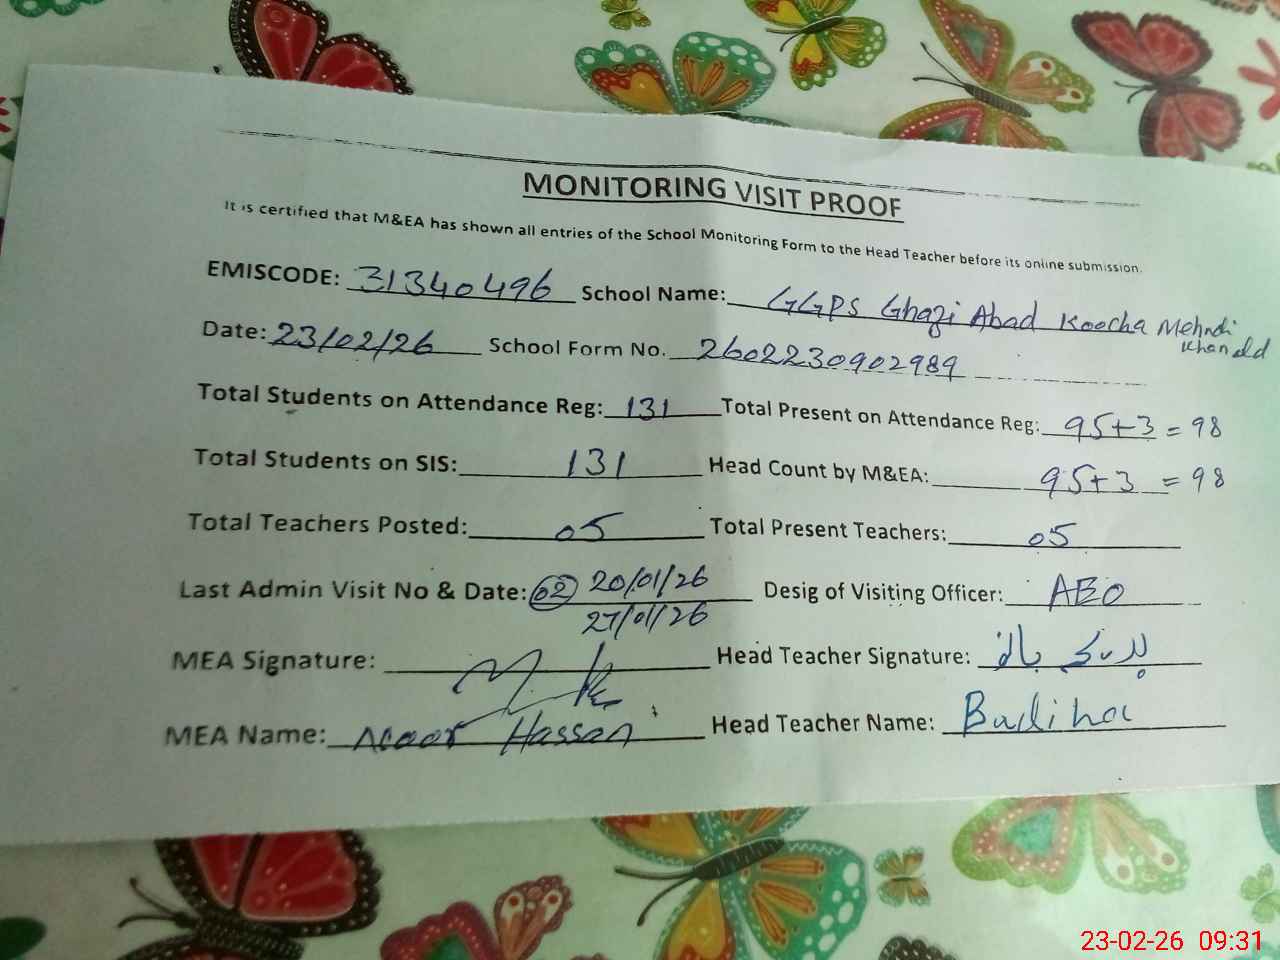 MONITORING VISIT PROOF
It is certified that M&EA has shown all entries of the School Monitoring Form to the Head Teacher before its online submission.
EMISCODE: 31340496 School Name: GGPS Ghazi Abad Koocha Mehndi
Khan
Date: 23/02/26 School Form No. 2602230902989
Total Students on Attendance Reg: 131 Total Present on Attendance Reg: 95+3 = 98
Total Students on SIS: 131 Head Count by M&EA: 95+3 = 98
Total Teachers Posted: 05 Total Present Teachers: 05
Last Admin Visit No & Date: 02 20/01/26 Desig of Visiting Officer: AEO
27/01/26
MEA Signature: Head Teacher Signature:
MEA Name: Hassan Head Teacher Name:
23-02-26 09:31